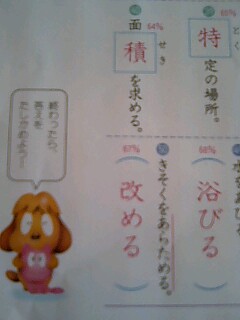 とく 65%
特定の場所。
せき 64%
面積を求める。
68%
浴びる
きそくをあらためる。
67%
改める
終わったら、
答えを
たしかめよう!